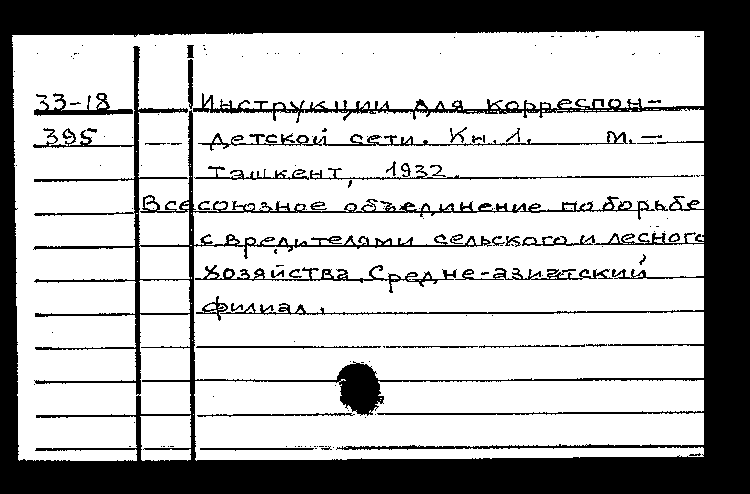 33-18 Инструкции для корреспон-
395 детской сети. Кн. 1. М.—
Ташкент, 1932.
Всесоюзное объединение по борьбе
с вредителями сельского и лесного
хозяйства. Средне-азиатский
филиал.